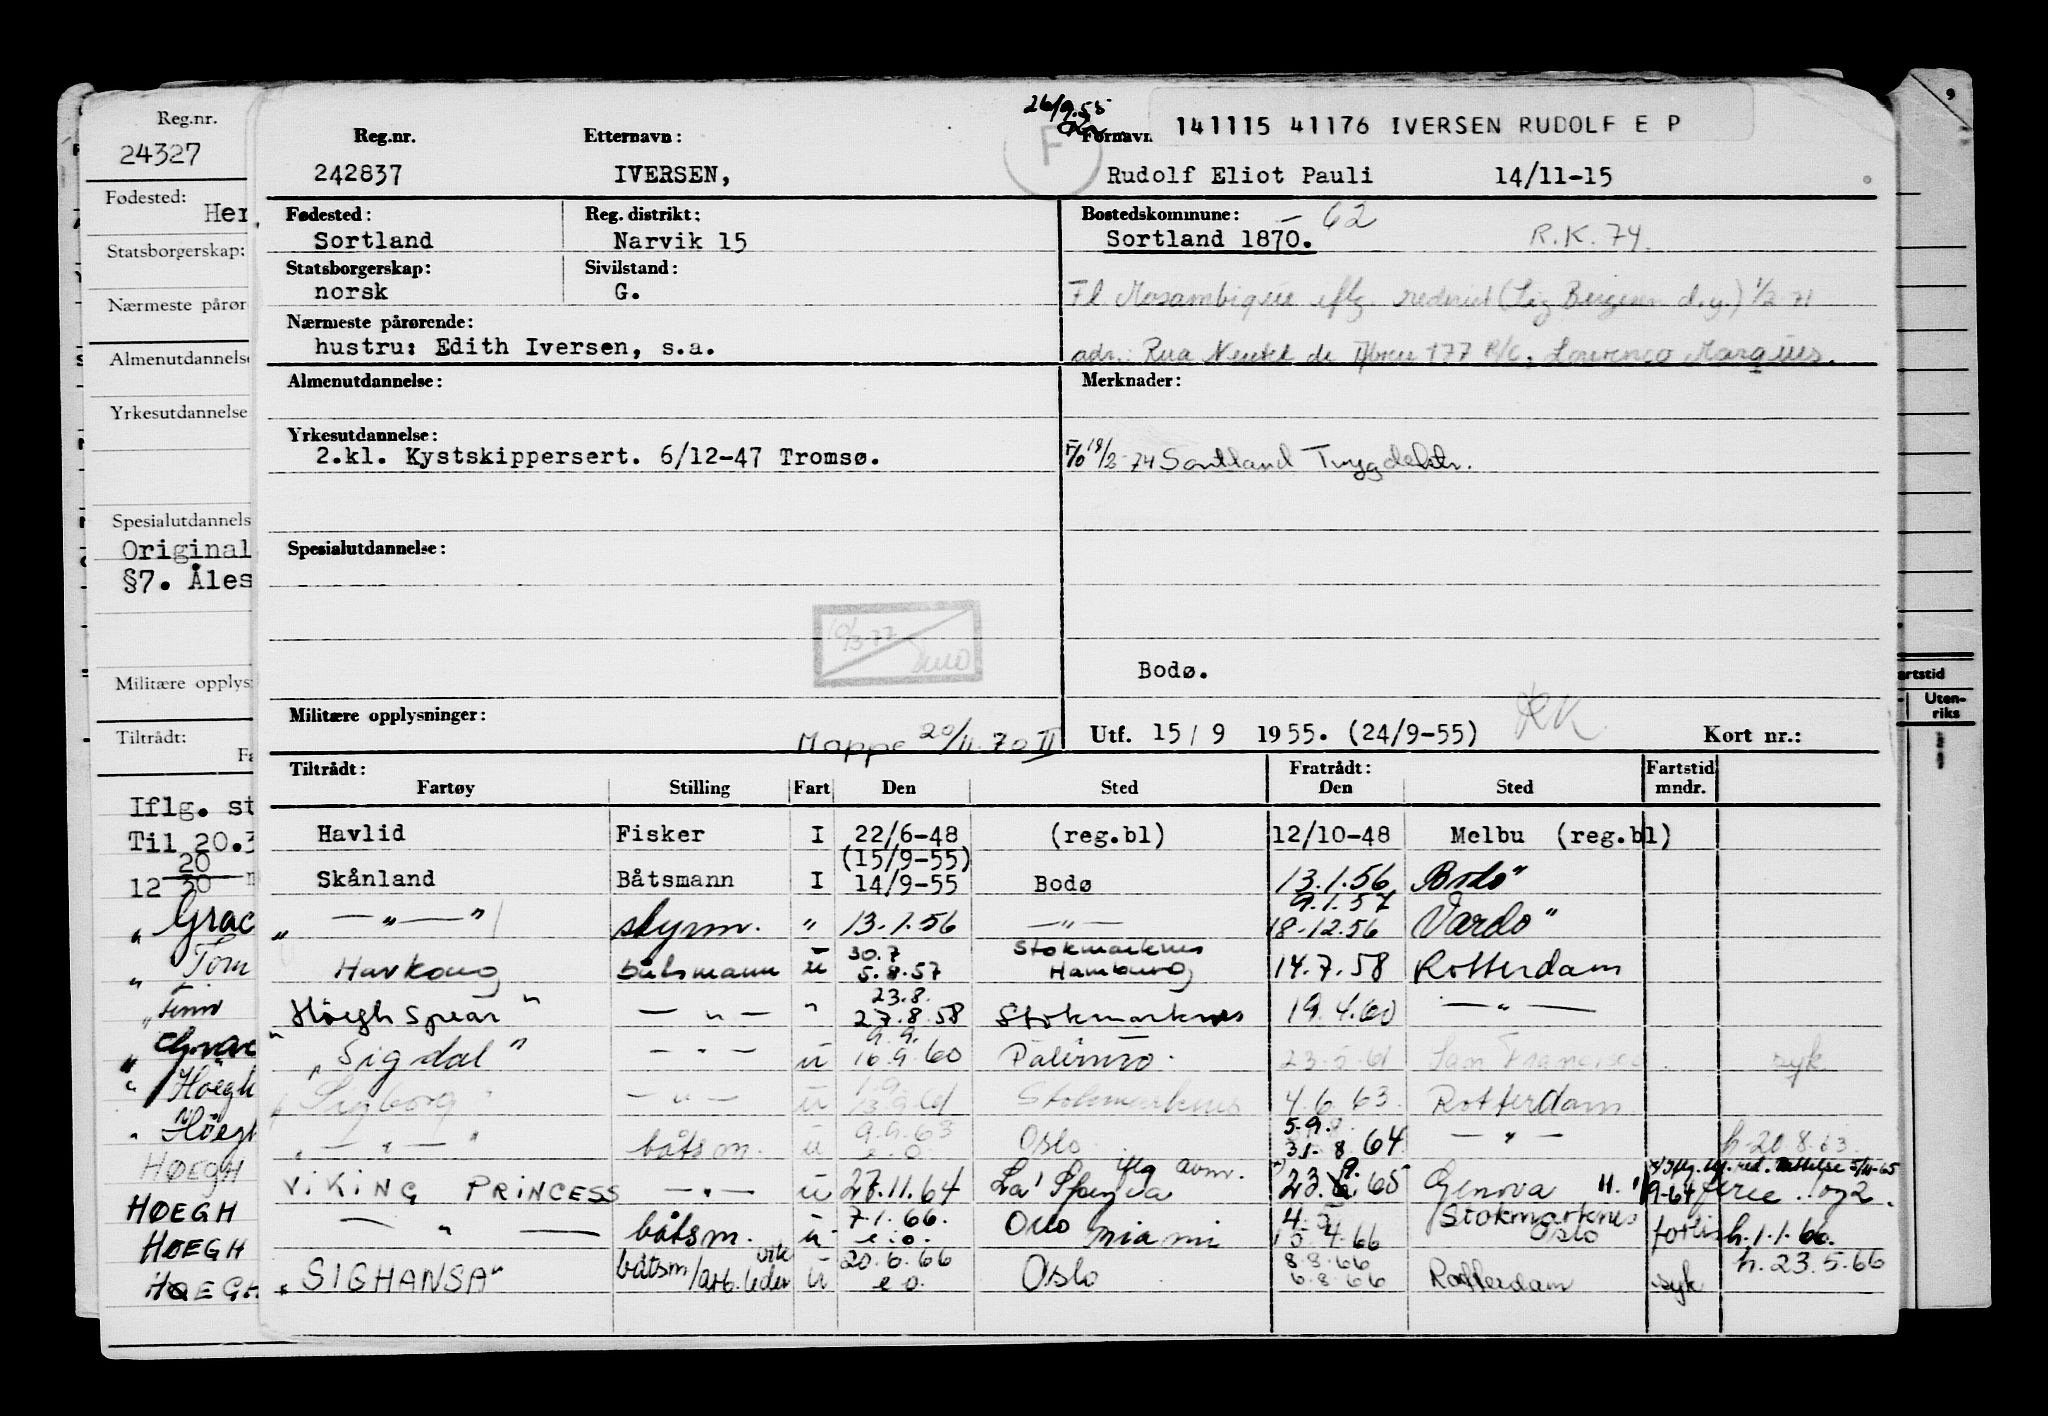 Reg.nr.
24327
Fødested:
Her
Statsborgerskap:
Nærmeste pårøre
Almenutdannelse
Yrkesutdannelse
Spesialutdannels
Original
§7. Åles
Militære opplys
Tiltrådt:
Iflg. st
Til 20.3
20
12 30
" Grac
" Tom
" Høegh
HØEGH
HØEGH
HØEGH
HØEGH
26/9.55
F
Reg.nr. Etternavn: Fornavn 141115 41176 IVERSEN RUDOLF E P
242837 IVERSEN, Rudolf Eliot Pauli 14/11-15
Fødested: Reg. distrikt: Bostedskommune: 62
Sortland Narvik 15 Sortland 1870. R.K. 74.
Statsborgerskap: Sivilstand:
norsk G. Fl. Mosambique iflg. rederiet (Sig Bergesen d.y.) 1/2 71
Nærmeste pårørende:
hustru: Edith Iversen, s.a. adr.: Rua de Abreu 177 R/C, Lourenco Marques.
Almenutdannelse: Merknader:
Yrkesutdannelse:
2.kl. Kystskippersert. 6/12-47 Tromsø. F/o 19/2-74 Sortland Trygdektr.
Spesialutdannelse:
10/3-77
Bodø.
Militære opplysninger: Mappe 20/11.70 II Utf. 15/9 1955. (24/9-55) RK Kort nr.:
Tiltrådt: Fratrådt: Fartstid
Fartøy Stilling Fart Den Sted Den Sted mndr.
Havlid Fisker I 22/6-48 (reg.bl) 12/10-48 Melbu (reg.bl)
(15/9-55)
Skånland Båtsmann I 14/9-55 Bodø 13.1.56 Bodø
9.1.57
" — " — " styrm. " 13.1.56 — " — 18-12.56 Vardø
30.7 Stokmarknes
Havkong båtsmann u 5.8.57 Hamburg 14.7.58 Rotterdam
23.8.
"Høegh Spear" — " — " 27.8.58 Stokmarknes 19.4.60 — " —
9.9.
"Sigdal" — " — u 16.9.60 Palermo. 23.5.61 San Francisco syk
1.9.
"Sigborg" — " — u 13.9.61 Stokmarknes 4.6.63 Rotterdam
9.9.63 5.9.
" — " — " båtsm. u e.o. Oslo 31.8 64. — " — h. 20.8.63
iflg avm.
VIKING PRINCESS — " — u 27.11.64 La Spezia 23.9.65 Genova 9-64 ferie
7.1.66. 4.5 Stokmarknes
— " — båtsm. u e.o. Oslo Miami 4.66 Oslo forlis h.1.1.66.
20.6.66 8.8.66 h. 23.5.66
"SIGHANSA" båtsm/arb.leder u e.o. Oslo 6.8.66 Rotterdam syk
9
artstid
Uten-
riks